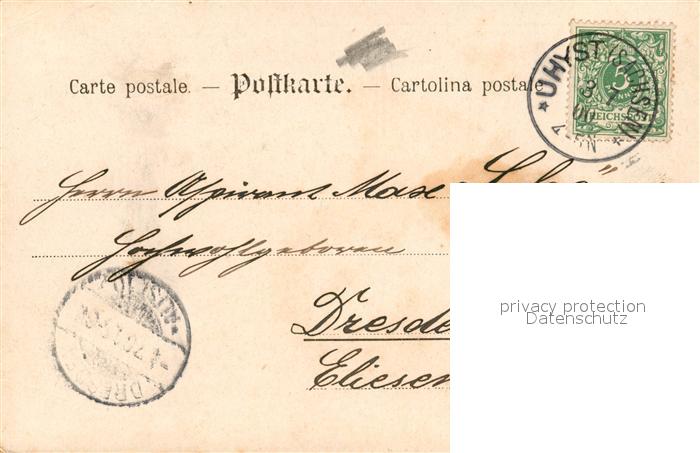 Carte postale. — Postkarte. — Cartolina postale
UHYST (SACHSEN)
5
REICHSPOST
3 7
00
4-5N
Herrn Aspirant Max
Hochwohlgeboren
Dresde
Eliesen
DRES
privacy protection
Datenschutz